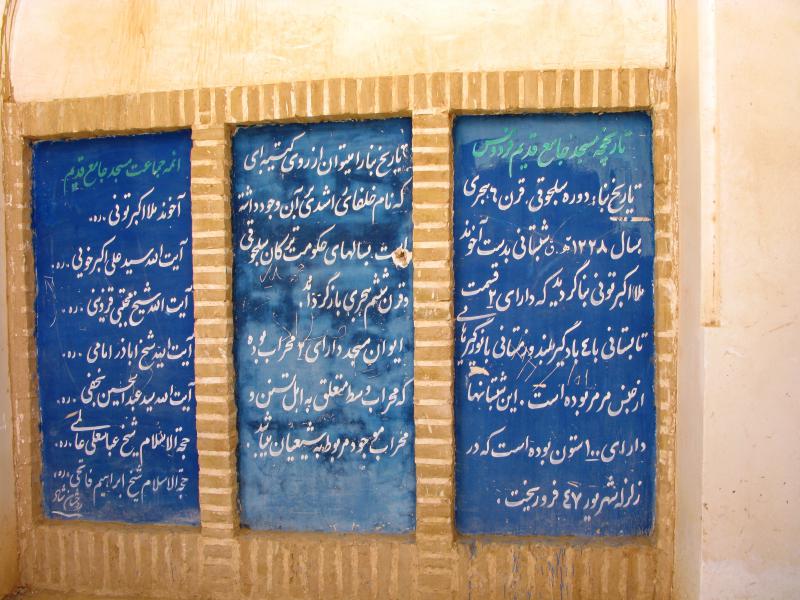 تاریخچه مسجد جامع قدیم فردوس
تاریخ بنا: دوره سلجوقی. قرن ۶ هجری
بسال ۱۲۲۸ ه.ق شبستانی بدست آخوند
ملا اکبر تونی بنا گردید که دارای ۲ قسمت
تابستانی با ٤ بادگیر بلند و زمستانی با نورگیرهایی
از جنس مرمر بوده است. این شبستانها
دارای ۱۰۰ ستون بوده است که در
زلزله شهریور ٤۷ فرو ریخت.
تاریخ بنا را میتوان از روی کتیبه ای
که نام خلفای راشدی بر آن وجود داشته
است. بسالهای حکومت ترکان سلجوقی
و قرن ششم هجری بازگرداند.
ایوان مسجد دارای ۲ محراب بوده
که محراب وسط متعلق به اهل تسنن و
محراب موجود مربوط به شیعیان میباشد.
ائمه جماعت مسجد جامع قدیم
آخوند ملا اکبر تونی .ره.
آیت الله سید علی اکبر خویی .ره.
آیت الله شیخ مجتبی قزوینی .ره.
آیت الله شیخ اباذر امامی .ره.
آیت الله سید عبدالحسین نجفی .ره.
حجة الاسلام شیخ عباسعلی عالمی .ره.
حجة الاسلام شیخ ابراهیم فاتحی .ره.